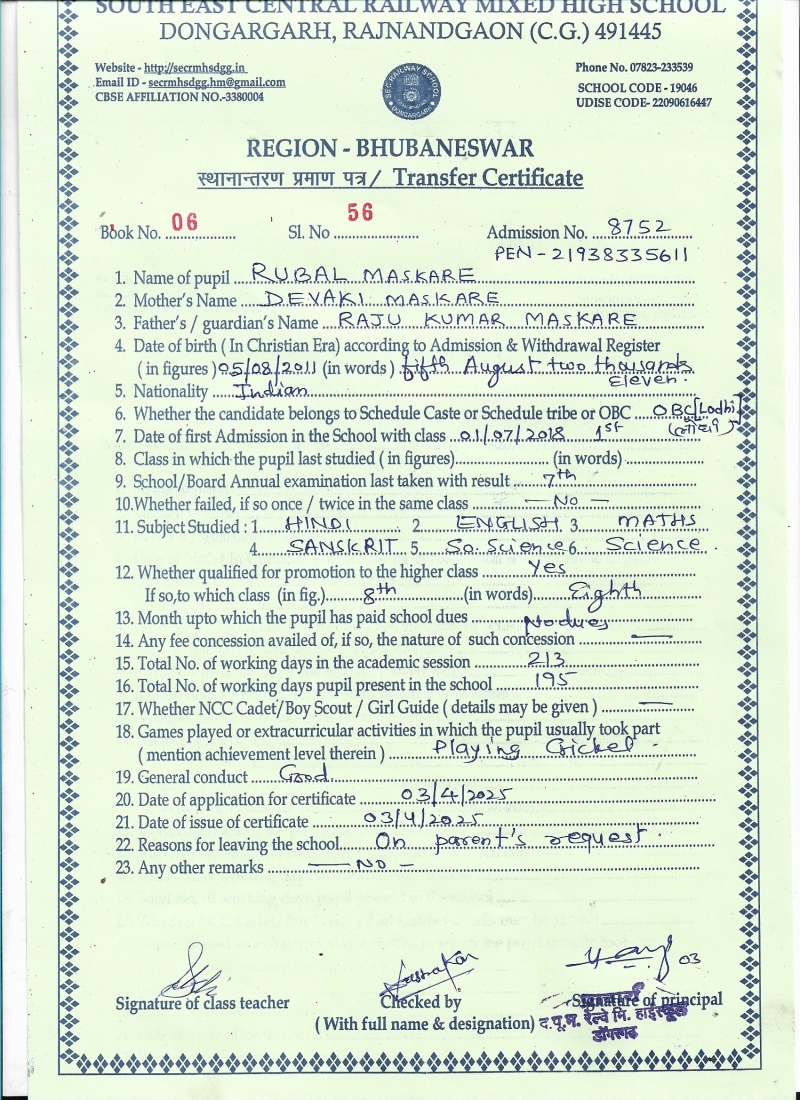 SOUTH EAST CENTRAL RAILWAY MIXED HIGH SCHOOL
DONGARGARH, RAJNANDGAON (C.G.) 491445
Website - http://secrmhsdgg.in
Phone No. 07823-233539
Email ID - secrmhsdgg.hm@gmail.com
SCHOOL CODE - 19046
CBSE AFFILIATION NO.-3380004
UDISE CODE- 22090616447
SEC RAILWAY SCHOOL
DONGARGARH
REGION - BHUBANESWAR
स्थानान्तरण प्रमाण पत्र / Transfer Certificate
Book No. 06 Sl. No 56 Admission No. 8752
PEN - 21938335611
1. Name of pupil RUBAL MASKARE
2. Mother's Name DEVAKI MASKARE
3. Father's / guardian's Name RAJU KUMAR MASKARE
4. Date of birth ( In Christian Era) according to Admission & Withdrawal Register
( in figures ) 05/08/2011 (in words ) fifth August two thousands
Eleven.
5. Nationality Indian
6. Whether the candidate belongs to Schedule Caste or Schedule tribe or OBC OBC [Lodhi]
(लोधी)
7. Date of first Admission in the School with class 01/07/2018 1st
8. Class in which the pupil last studied ( in figures) (in words)
9. School/Board Annual examination last taken with result 7th
10. Whether failed, if so once / twice in the same class — No —
11. Subject Studied : 1. HINDI 2 ENGLISH 3 MATHS
4. SANSKRIT 5 So. Science 6 Science
12. Whether qualified for promotion to the higher class Yes
If so,to which class (in fig.) 8th (in words) Eighth
13. Month upto which the pupil has paid school dues No dues
14. Any fee concession availed of, if so, the nature of such concession —
15. Total No. of working days in the academic session 213
16. Total No. of working days pupil present in the school 195
17. Whether NCC Cadet/Boy Scout / Girl Guide ( details may be given ) —
18. Games played or extracurricular activities in which the pupil usually took part
( mention achievement level therein ) Playing Cricket
19. General conduct Good
20. Date of application for certificate 03/4/2025
21. Date of issue of certificate 03/4/2025
22. Reasons for leaving the school On parent's request.
23. Any other remarks — NO —
03
Signature of class teacher Checked by Signature of principal
( With full name & designation) द.पू.म. रेल्वे मि. हाईस्कूल
डोंगरगढ़